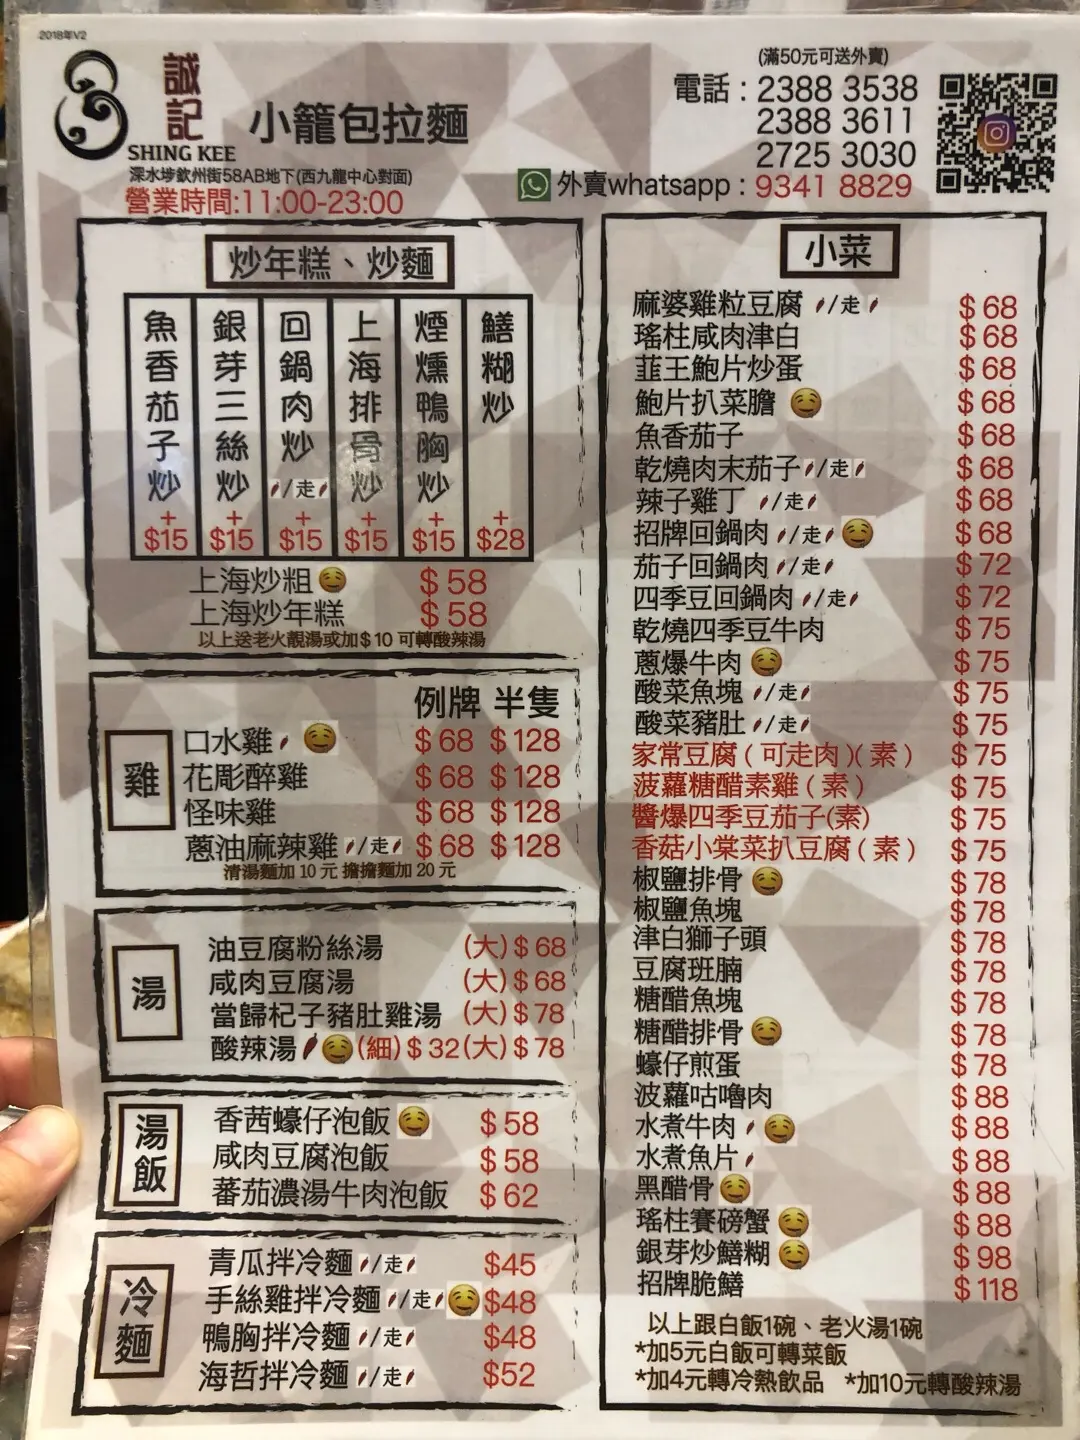 2018年V2
誠記
SHING KEE
小籠包拉麵
深水埗欽州街58AB地下(西九龍中心對面)
營業時間:11:00-23:00
(滿50元可送外賣)
電話：2388 3538
2388 3611
2725 3030
外賣whatsapp：9341 8829
炒年糕、炒麵
魚香茄子炒 + $15
銀芽三絲炒 + $15
回鍋肉炒 /走 + $15
上海排骨炒 + $15
煙燻鴨胸炒 + $15
鱔糊炒 + $28
上海炒粗 $58
上海炒年糕 $58
以上送老火靚湯或加$10 可轉酸辣湯
雞
例牌 半隻
口水雞 $68 $128
花彫醉雞 $68 $128
怪味雞 $68 $128
蔥油麻辣雞 /走 $68 $128
清湯麵加 10 元 擔擔麵加 20 元
湯
油豆腐粉絲湯 (大)$68
咸肉豆腐湯 (大)$68
當歸杞子豬肚雞湯 (大)$78
酸辣湯 (細)$32(大)$78
湯飯
香茜蠔仔泡飯 $58
咸肉豆腐泡飯 $58
蕃茄濃湯牛肉泡飯 $62
冷麵
青瓜拌冷麵 /走 $45
手絲雞拌冷麵 /走 $48
鴨胸拌冷麵 /走 $48
海哲拌冷麵 /走 $52
小菜
麻婆雞粒豆腐 /走 $68
瑤柱咸肉津白 $68
韮王鮑片炒蛋 $68
鮑片扒菜膽 $68
魚香茄子 $68
乾燒肉末茄子 /走 $68
辣子雞丁 /走 $68
招牌回鍋肉 /走 $68
茄子回鍋肉 /走 $72
四季豆回鍋肉 /走 $72
乾燒四季豆牛肉 $75
蔥爆牛肉 $75
酸菜魚塊 /走 $75
酸菜豬肚 /走 $75
家常豆腐（可走肉）(素） $75
菠蘿糖醋素雞（素） $75
醬爆四季豆茄子(素) $75
香菇小棠菜扒豆腐（素） $75
椒鹽排骨 $78
椒鹽魚塊 $78
津白獅子頭 $78
豆腐班腩 $78
糖醋魚塊 $78
糖醋排骨 $78
蠔仔煎蛋 $78
波蘿咕嚕肉 $88
水煮牛肉 $88
水煮魚片 $88
黑醋骨 $88
瑤柱賽磅蟹 $88
銀芽炒鱔糊 $98
招牌脆鱔 $118
以上跟白飯1碗、老火湯1碗
*加5元白飯可轉菜飯
*加4元轉冷熱飲品 *加10元轉酸辣湯